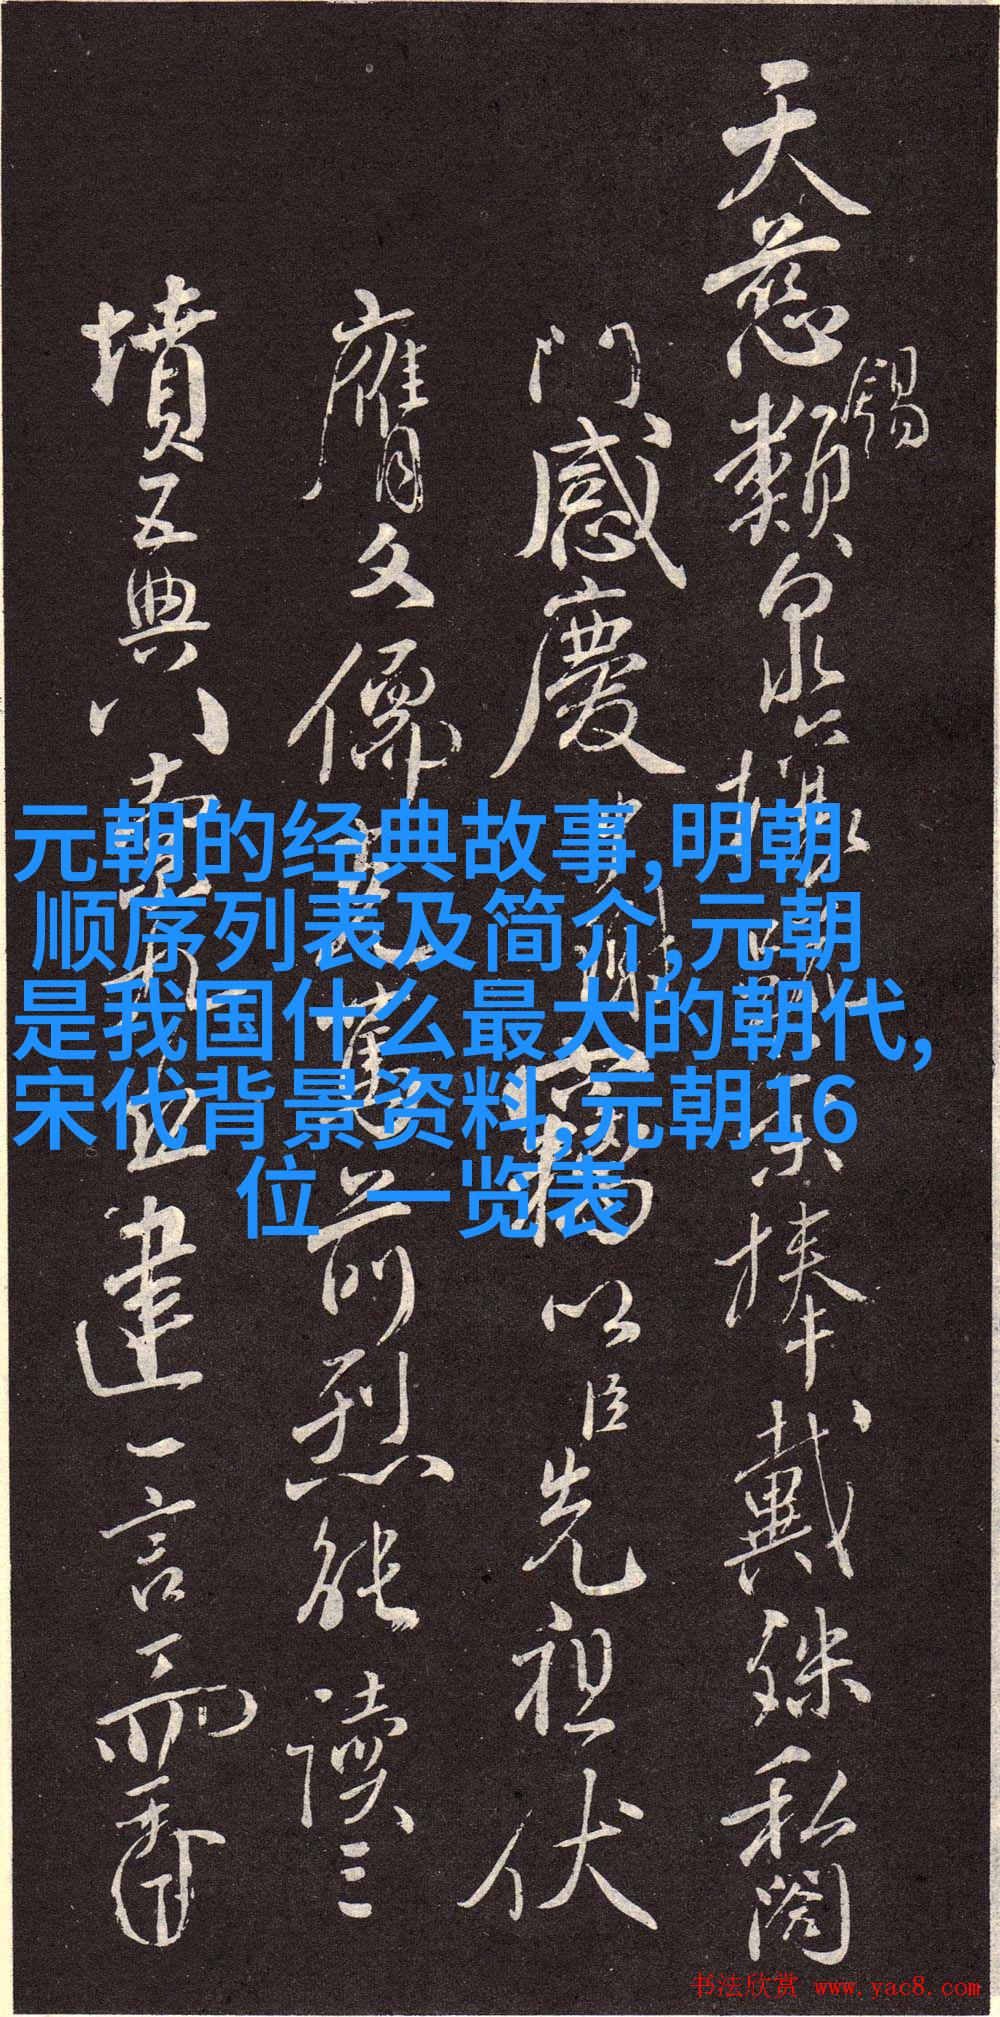 天慈錫類泉
捧戴殊私闔
門感慶
以臣先祖伏
膺文儒
前烈能讀三
墳五典八索
建一言
元朝的经典故事,明朝
顺序列表及简介,元朝
是我国什么最大的朝代,
宋代背景资料,元朝16
位 一览表
书法欣赏 www.yac8.com